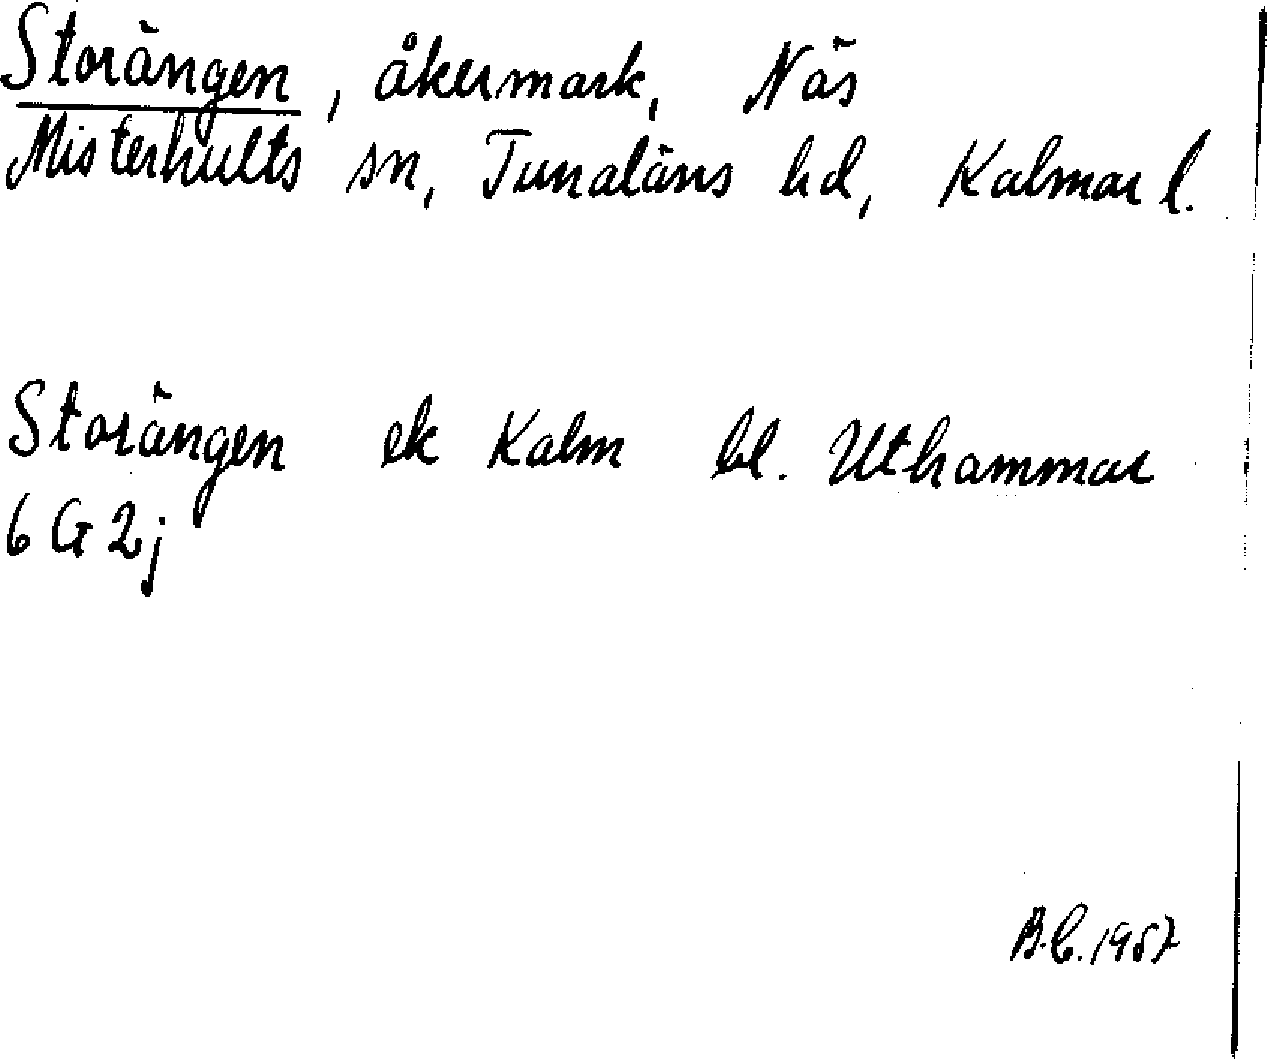 Storängen, åkermark, Näs
Misterhults sn, Tunaläns hd, Kalmar l.
Storängen ek Kalm bl. Uthammar
6 G 2j
B.C. 1957